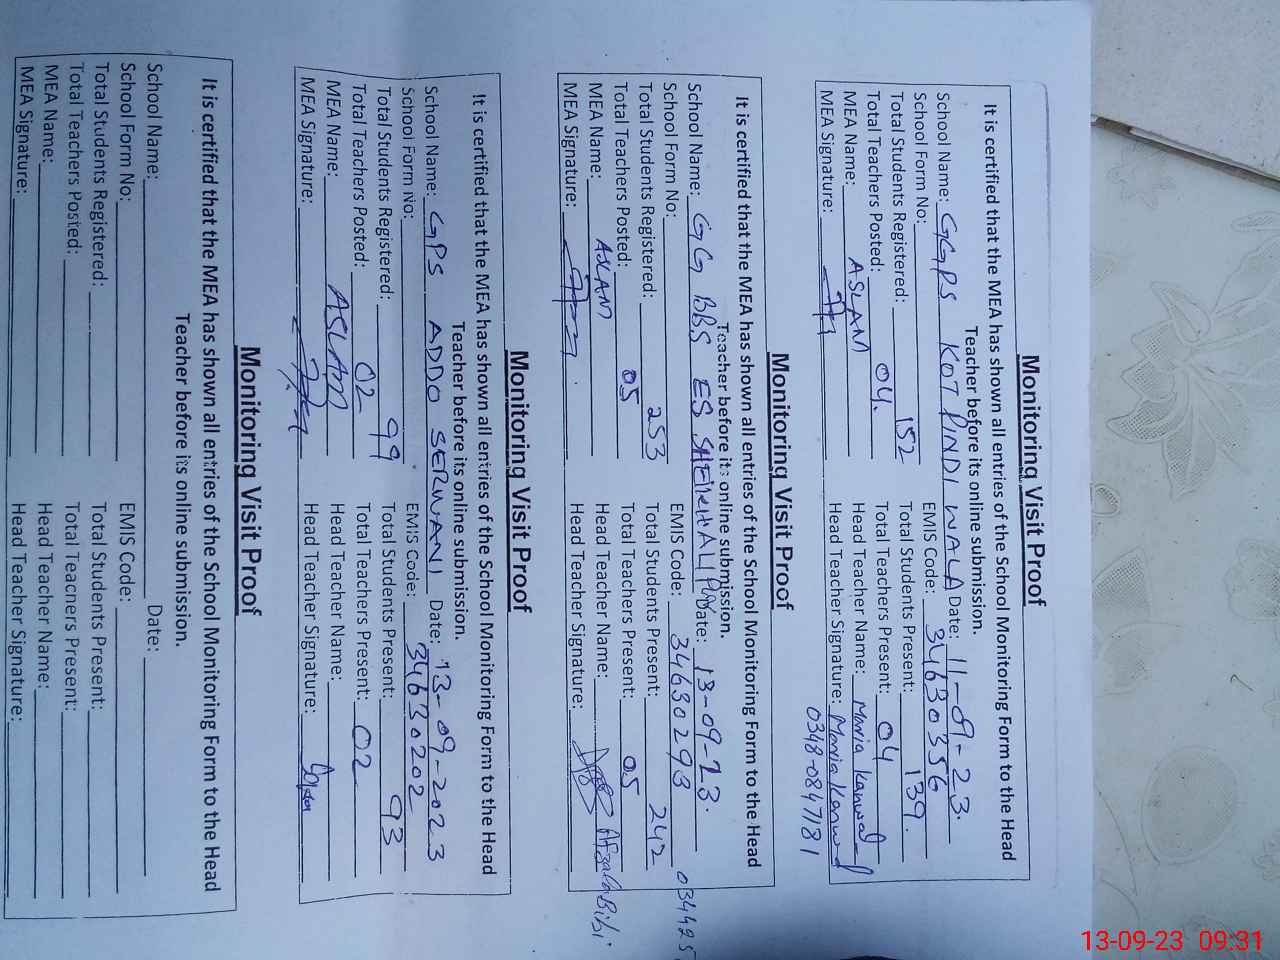 Monitoring Visit Proof
It is certified that the MEA has shown all entries of the School Monitoring Form to the Head
Teacher before its online submission.
School Name: GGPS KOT PINDI WALA Date: 11-09-23.
School Form No: EMIS Code: 34630356
Total Students Registered: 152 Total Students Present: 139.
Total Teachers Posted: 04. Total Teachers Present: 04
MEA Name: ASLAM Head Teacher Name: Maria Kanwal
MEA Signature: Head Teacher Signature: Maria Kanwal
0348-0847181
Monitoring Visit Proof
It is certified that the MEA has shown all entries of the School Monitoring Form to the Head
Teacher before its online submission.
School Name: GG BBS ES SHEIKH ALI Date: 13-09-23.
School Form No: EMIS Code: 34630293 034425
Total Students Registered: 253 Total Students Present: 242
Total Teachers Posted: 05 Total Teachers Present: 05
MEA Name: Head Teacher Name: Bibi
MEA Signature: Head Teacher Signature:
Monitoring Visit Proof
It is certified that the MEA has shown all entries of the School Monitoring Form to the Head
Teacher before its online submission.
School Name: GPS ADDO SERWANI Date: 13-09-2023
School Form No: EMIS Code: 34630202
Total Students Registered: 99 Total Students Present: 93
Total Teachers Posted: 02 Total Teachers Present: 02
MEA Name: ASLAM Head Teacher Name:
MEA Signature: Head Teacher Signature:
Monitoring Visit Proof
It is certified that the MEA has shown all entries of the School Monitoring Form to the Head
Teacher before its online submission.
School Name: Date:
School Form No: EMIS Code:
Total Students Registered: Total Students Present:
Total Teachers Posted: Total Teachers Present:
MEA Name: Head Teacher Name:
MEA Signature: Head Teacher Signature:
13-09-23 09:31